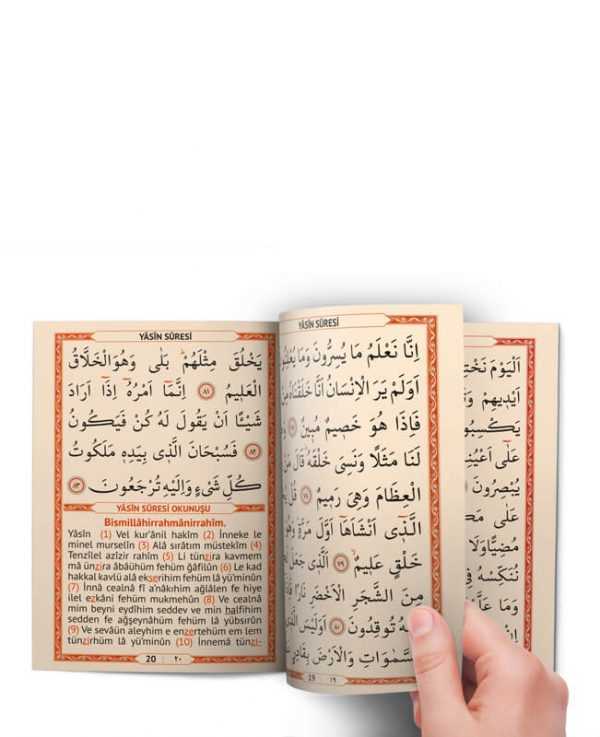 اَلْيَوْمَ
اَيْدِيهِمْ
عَلٰٓى
يُبْصِرُونَ
عَلٰى
مُضِيًّا وَلَا
نُنَكِّسْهُ
وَمَا
YÂSÎN SÛRESİ
اِنَّا نَعْلَمُ مَا يُسِرُّونَ وَمَا
اَوَلَمْ يَرَ الْاِنْسَانُ اَنَّا خَلَقْنَاهُ
فَاِذَا هُوَ خَصِيمٌ مُبِينٌ
لَنَا مَثَلًا وَنَسِيَ خَلْقَهُ قَالَ مَنْ
الْعِظَامَ وَهِيَ رَمِيمٌ ﴿٧٨﴾ قُلْ
الَّذِي اَنْشَاَهَا اَوَّلَ مَرَّةٍ
خَلْقٍ عَلِيمٌ ﴿٧٩﴾ اَلَّذِي جَعَلَ
مِنَ الشَّجَرِ الْاَخْضَرِ نَارًا
تُوقِدُونَ ﴿٨٠﴾ اَوَلَيْسَ الَّذِي
السَّمٰوَاتِ وَالْاَرْضَ بِقَادِرٍ
19 ١٩
YÂSÎN SÛRESİ
يَخْلُقَ مِثْلَهُمْ بَلٰى وَهُوَ الْخَلَّاقُ
الْعَلِيمُ ﴿٨١﴾ اِنَّمَٓا اَمْرُهُٓ اِذَٓا اَرَادَ
شَيْئًا اَنْ يَقُولَ لَهُ كُنْ فَيَكُونُ
﴿٨٢﴾ فَسُبْحَانَ الَّذِي بِيَدِهِ مَلَكُوتُ
كُلِّ شَيْءٍ وَاِلَيْهِ تُرْجَعُونَ ﴿٨٣﴾
YÂSÎN SÛRESİ OKUNUŞU
Bismillâhirrahmânirrahîm.
Yâsîn (1) Vel kur'ânil hakîm (2) İnneke le
minel murselîn (3) Alâ sırâtım müstekîm (4)
Tenzîlel azîzir rahîm (5) Li tünzira kavmem
mâ ünzira âbâühüm fehüm ğâfilûn (6) Le kad
hakkal kavlü alâ ekserihim fehüm lâ yü'minûn
(7) İnnâ cealnâ fî a'nâkıhim ağlâlen fe hiye
ilel ezkâni fehüm mukmehûn (8) Ve cealnâ
mim beyni eydîhim seddev ve min halfihim
sedden fe ağşeynâhüm fehüm lâ yübsırûn
(9) Ve sevâün aleyhim e enzertehüm em lem
tünzirhüm lâ yü'minûn (10) İnnemâ tünzi-
20 ٢٠